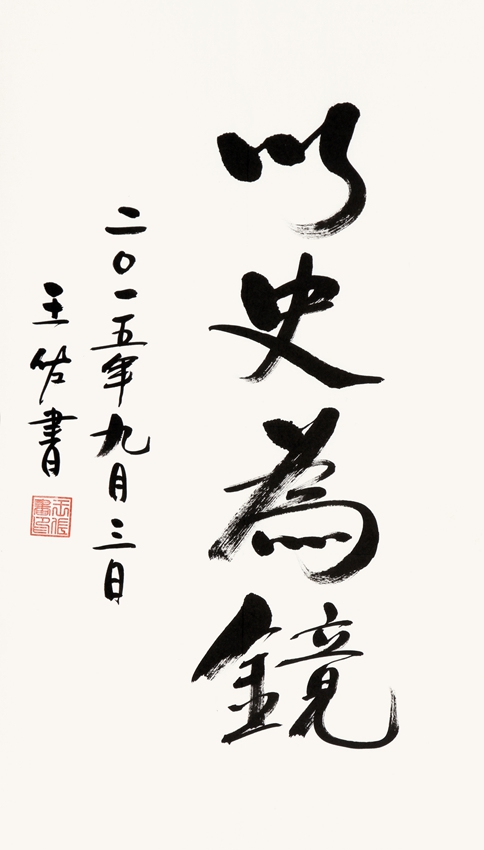 以史為鏡
二〇一五年九月三日
王佐書